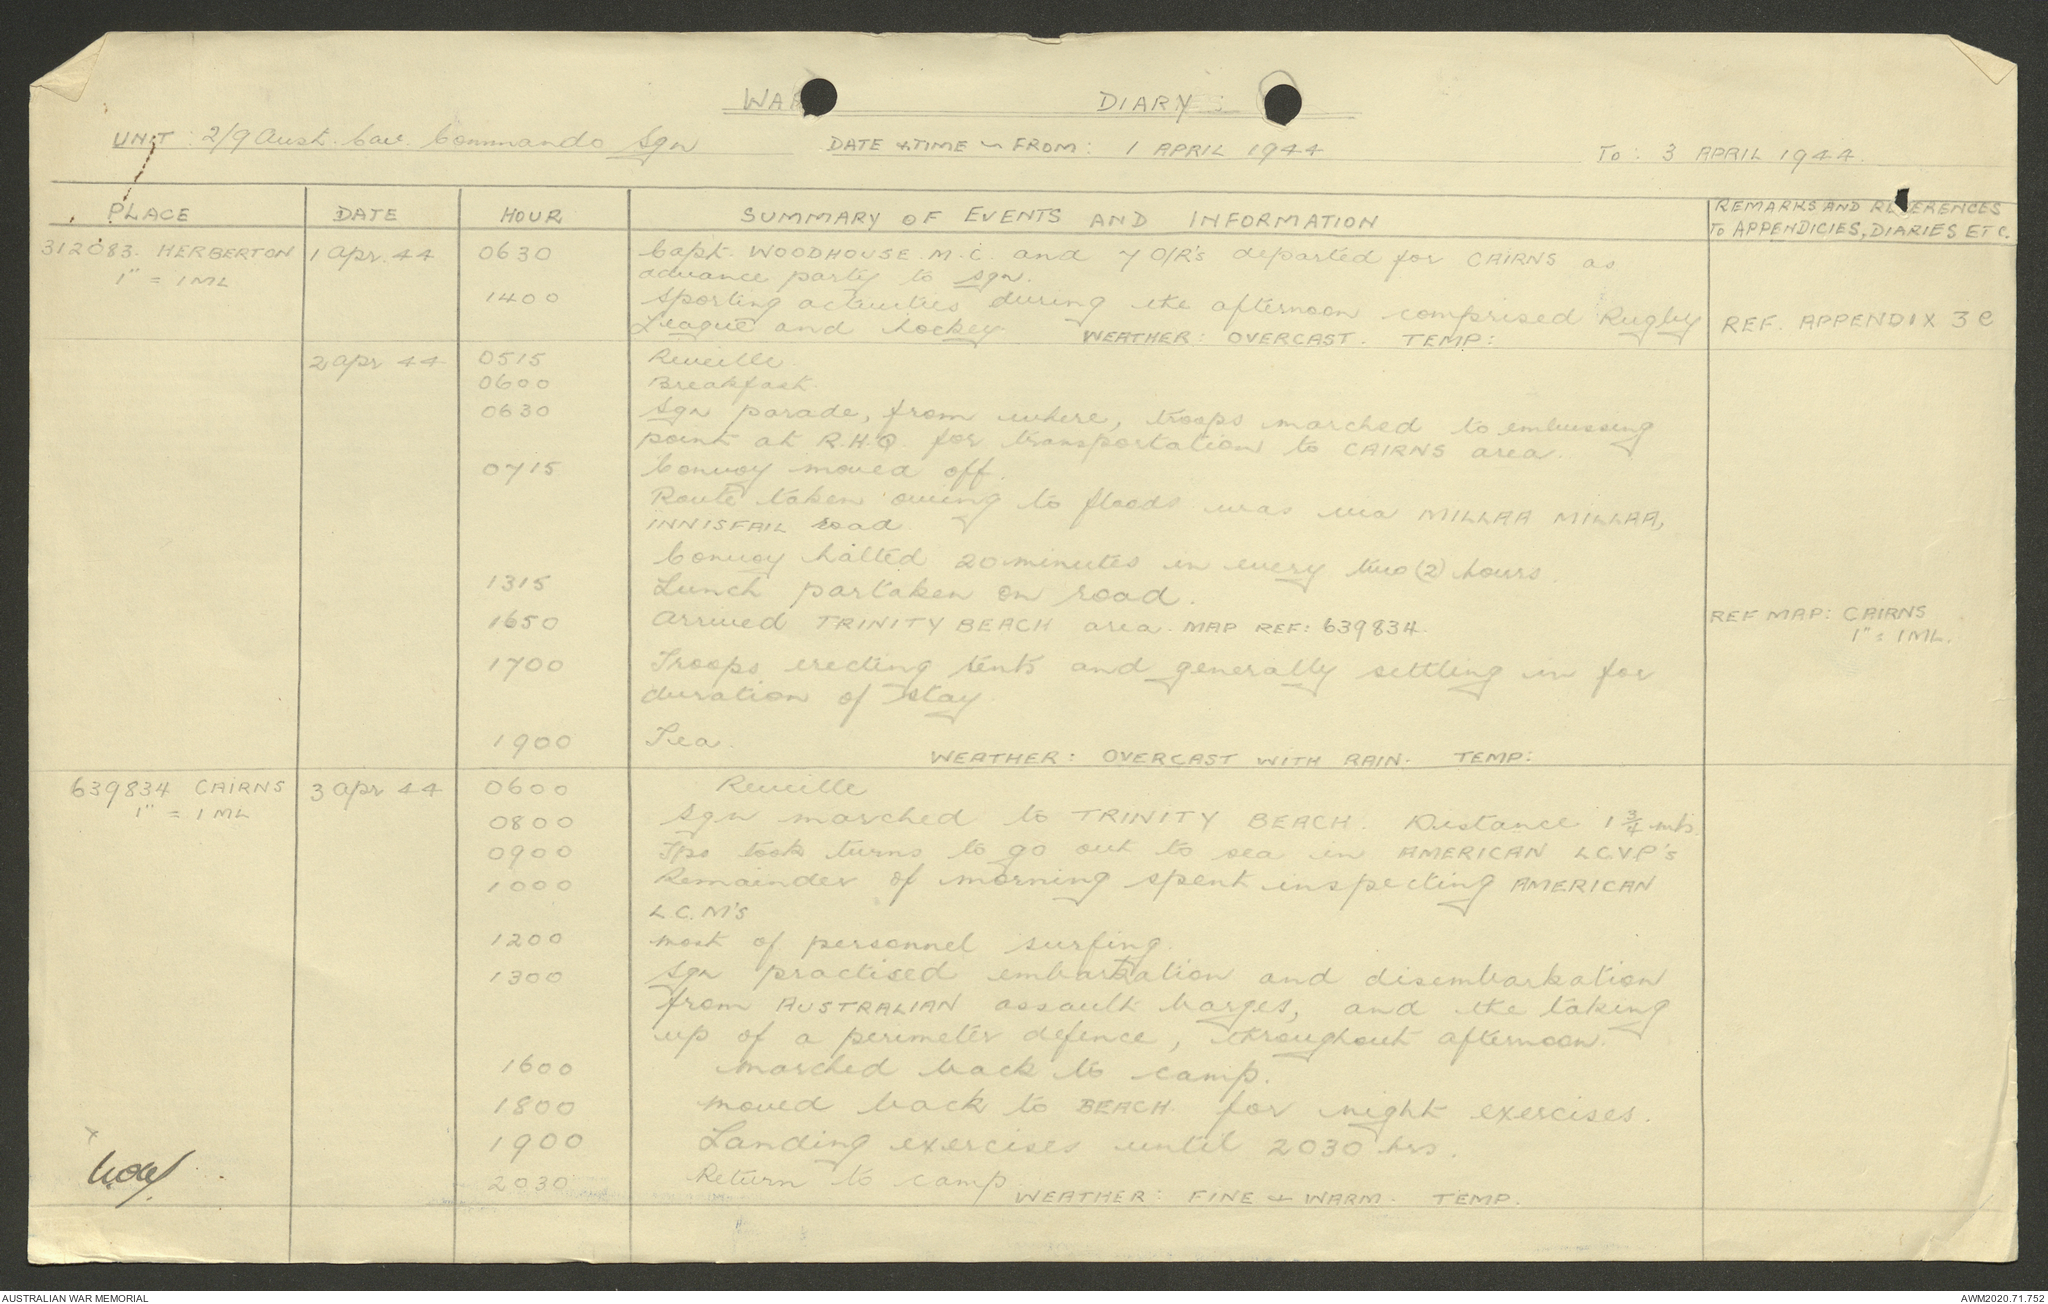 WAR DIARY
UNIT: 2/9 Aust. Cav. Commando Sqn DATE & TIME - FROM: 1 APRIL 1944 TO: 3 APRIL 1944.
PLACE DATE HOUR SUMMARY OF EVENTS AND INFORMATION REMARKS AND REFERENCES
TO APPENDICIES, DIARIES ETC.
312083. HERBERTON 1 Apr. 44 0630 Capt. WOODHOUSE. M.C. and 7 O/R's departed for CAIRNS as
1" = 1 ML advance party to Sqn.
1400 Sporting activities during the afternoon comprised Rugby
League and hockey WEATHER: OVERCAST. TEMP: REF. APPENDIX 3C
2 Apr 44 0515 Reveille
0600 Breakfast.
0630 Sqn parade, from where, troops marched to embussing
point at R.H.Q. for transportation to CAIRNS area.
0715 Convoy moved off.
Route taken owing to floods was via MILLAA MILLAA,
INNISFAIL road.
Convoy halted 20 minutes in every two (2) hours.
1315 Lunch partaken on road.
1650 Arrived TRINITY BEACH area. MAP REF: 639834. REF MAP: CAIRNS
1" = 1 ML.
1700 Troops erecting tents and generally settling in for
duration of stay.
1900 Tea.
WEATHER: OVERCAST WITH RAIN. TEMP:
639834 CAIRNS 3 Apr 44 0600 Reveille
1" = 1 ML
0800 Sqn marched to TRINITY BEACH. Distance 1 3/4 mls.
0900 Tps took turns to go out to sea in AMERICAN L.C.V.P's
1000 Remainder of morning spent inspecting AMERICAN
L.C.M's
1200 Most of personnel surfing.
1300 Sqn practised embarkation and disembarkation
from AUSTRALIAN assault barges, and the taking
up of a perimeter defence, throughout afternoon.
1600 Marched back to camp.
1800 Moved back to BEACH for night exercises.
1900 Landing exercises until 2030 hrs.
2030 Return to camp
WEATHER: FINE & WARM. TEMP.
AUSTRALIAN WAR MEMORIAL AWM2020.71.752